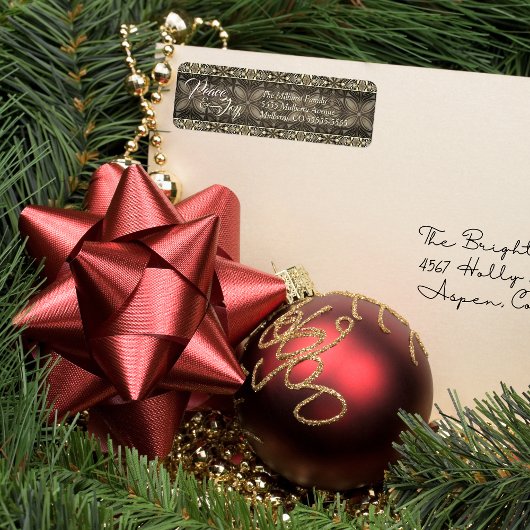 Peace
& Joy
The Milford Family
5555 Mulberry Avenue
Mulberry, CO 55555-5555
The Bright
4567 Holly
Aspen, Co